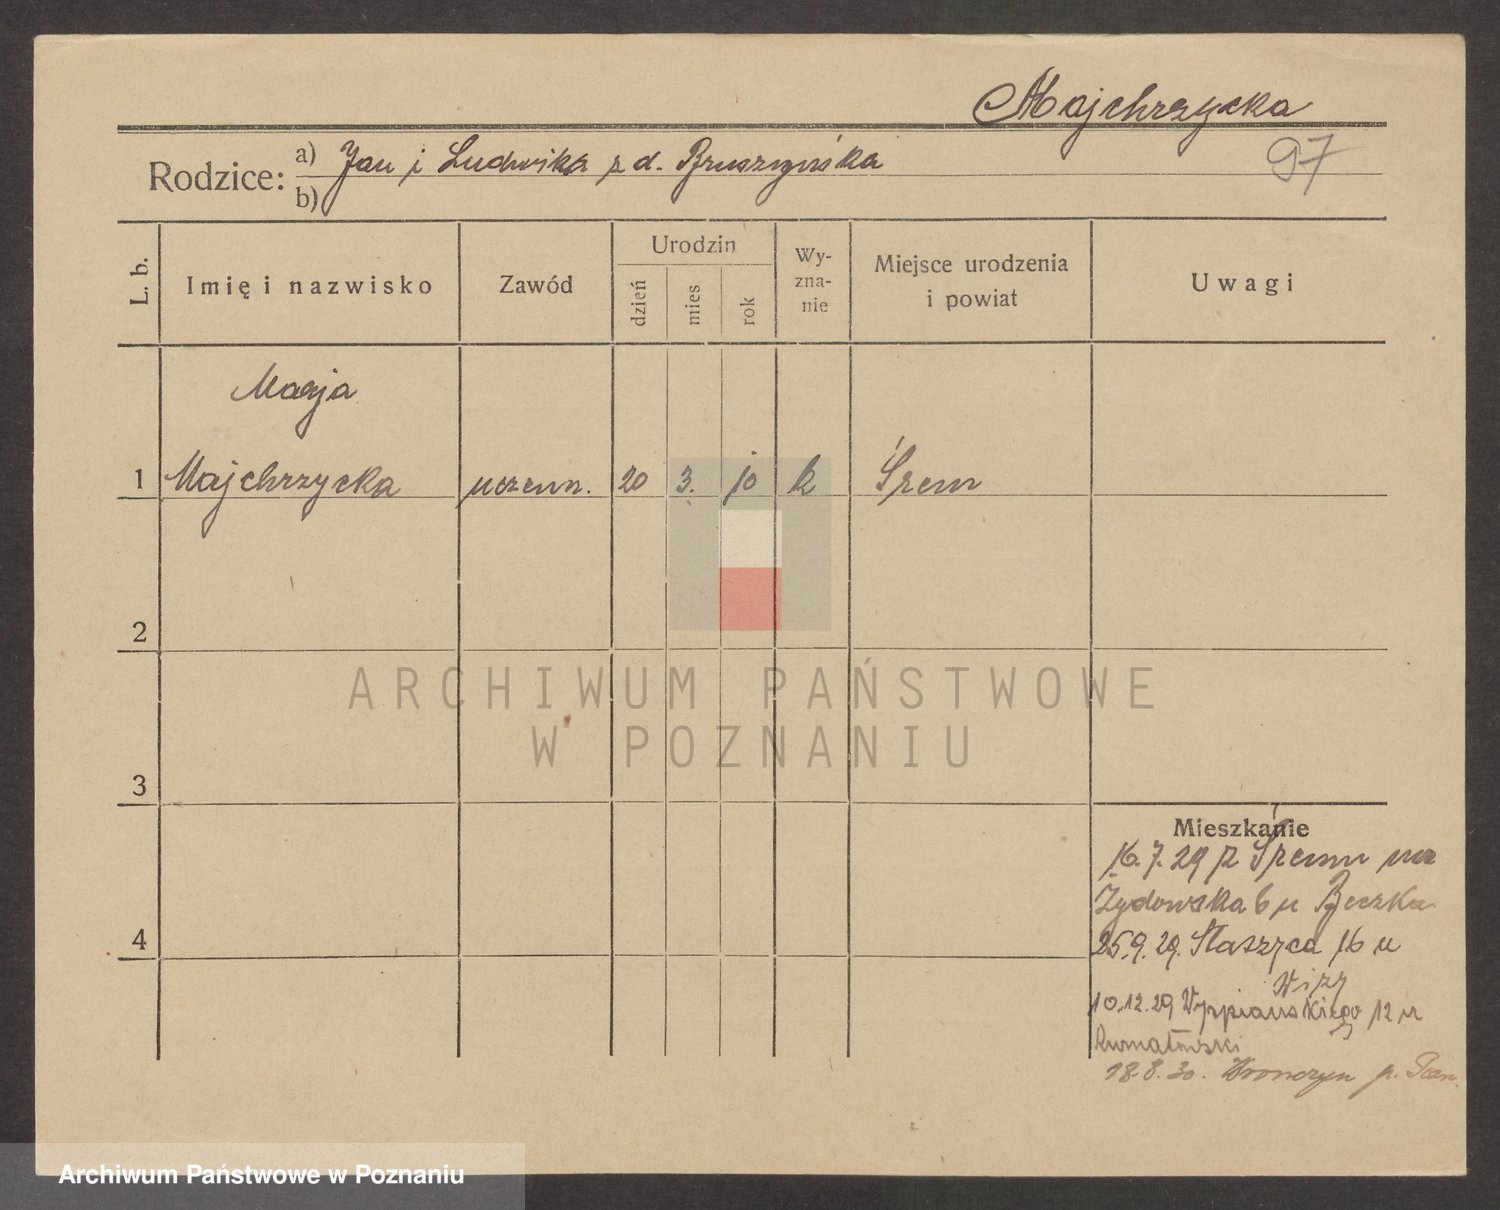 Majchrzycka
97
Rodzice: a) Jan i Ludwika z d. Bruszyńska
b)
L. b. Imię i nazwisko Zawód Urodzin dzień mies rok Wy-zna-nie Miejsce urodzenia i powiat Uwagi
Marja
1 Majchrzycka uczenn. 20 3. 10 k Śrem
2
ARCHIWUM PAŃSTWOWE
W POZNANIU
3
Mieszkanie
16.7.29 z Śremu
Żydowska 6 u Beczka
4
25.9.29. Staszyca 16 u
10.12.29 Wyspiańskiego 12 u
18.8.30. Wronczyn p. Pozn.
Archiwum Państwowe w Poznaniu